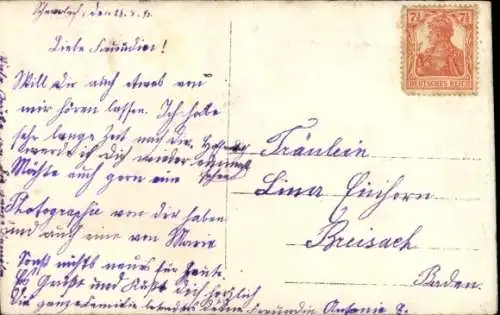 den 23.
Liebe Freundin!
Will dir auch etwas von
mir hören lassen. Ich habe
sehr lange Zeit von dir
werde dich wieder einmal
Möchte auch gern eine
Photographie von dir haben
und auch eine von Marie
Sonst nichts neues für heute
Es Grüßt und Küßt dich herzlich
die ganze Familie besonders deine Freundin Antonie
7½ 7½
DEUTSCHES REICH
Fräulein
Lina Einhorn
Breisach
Baden.